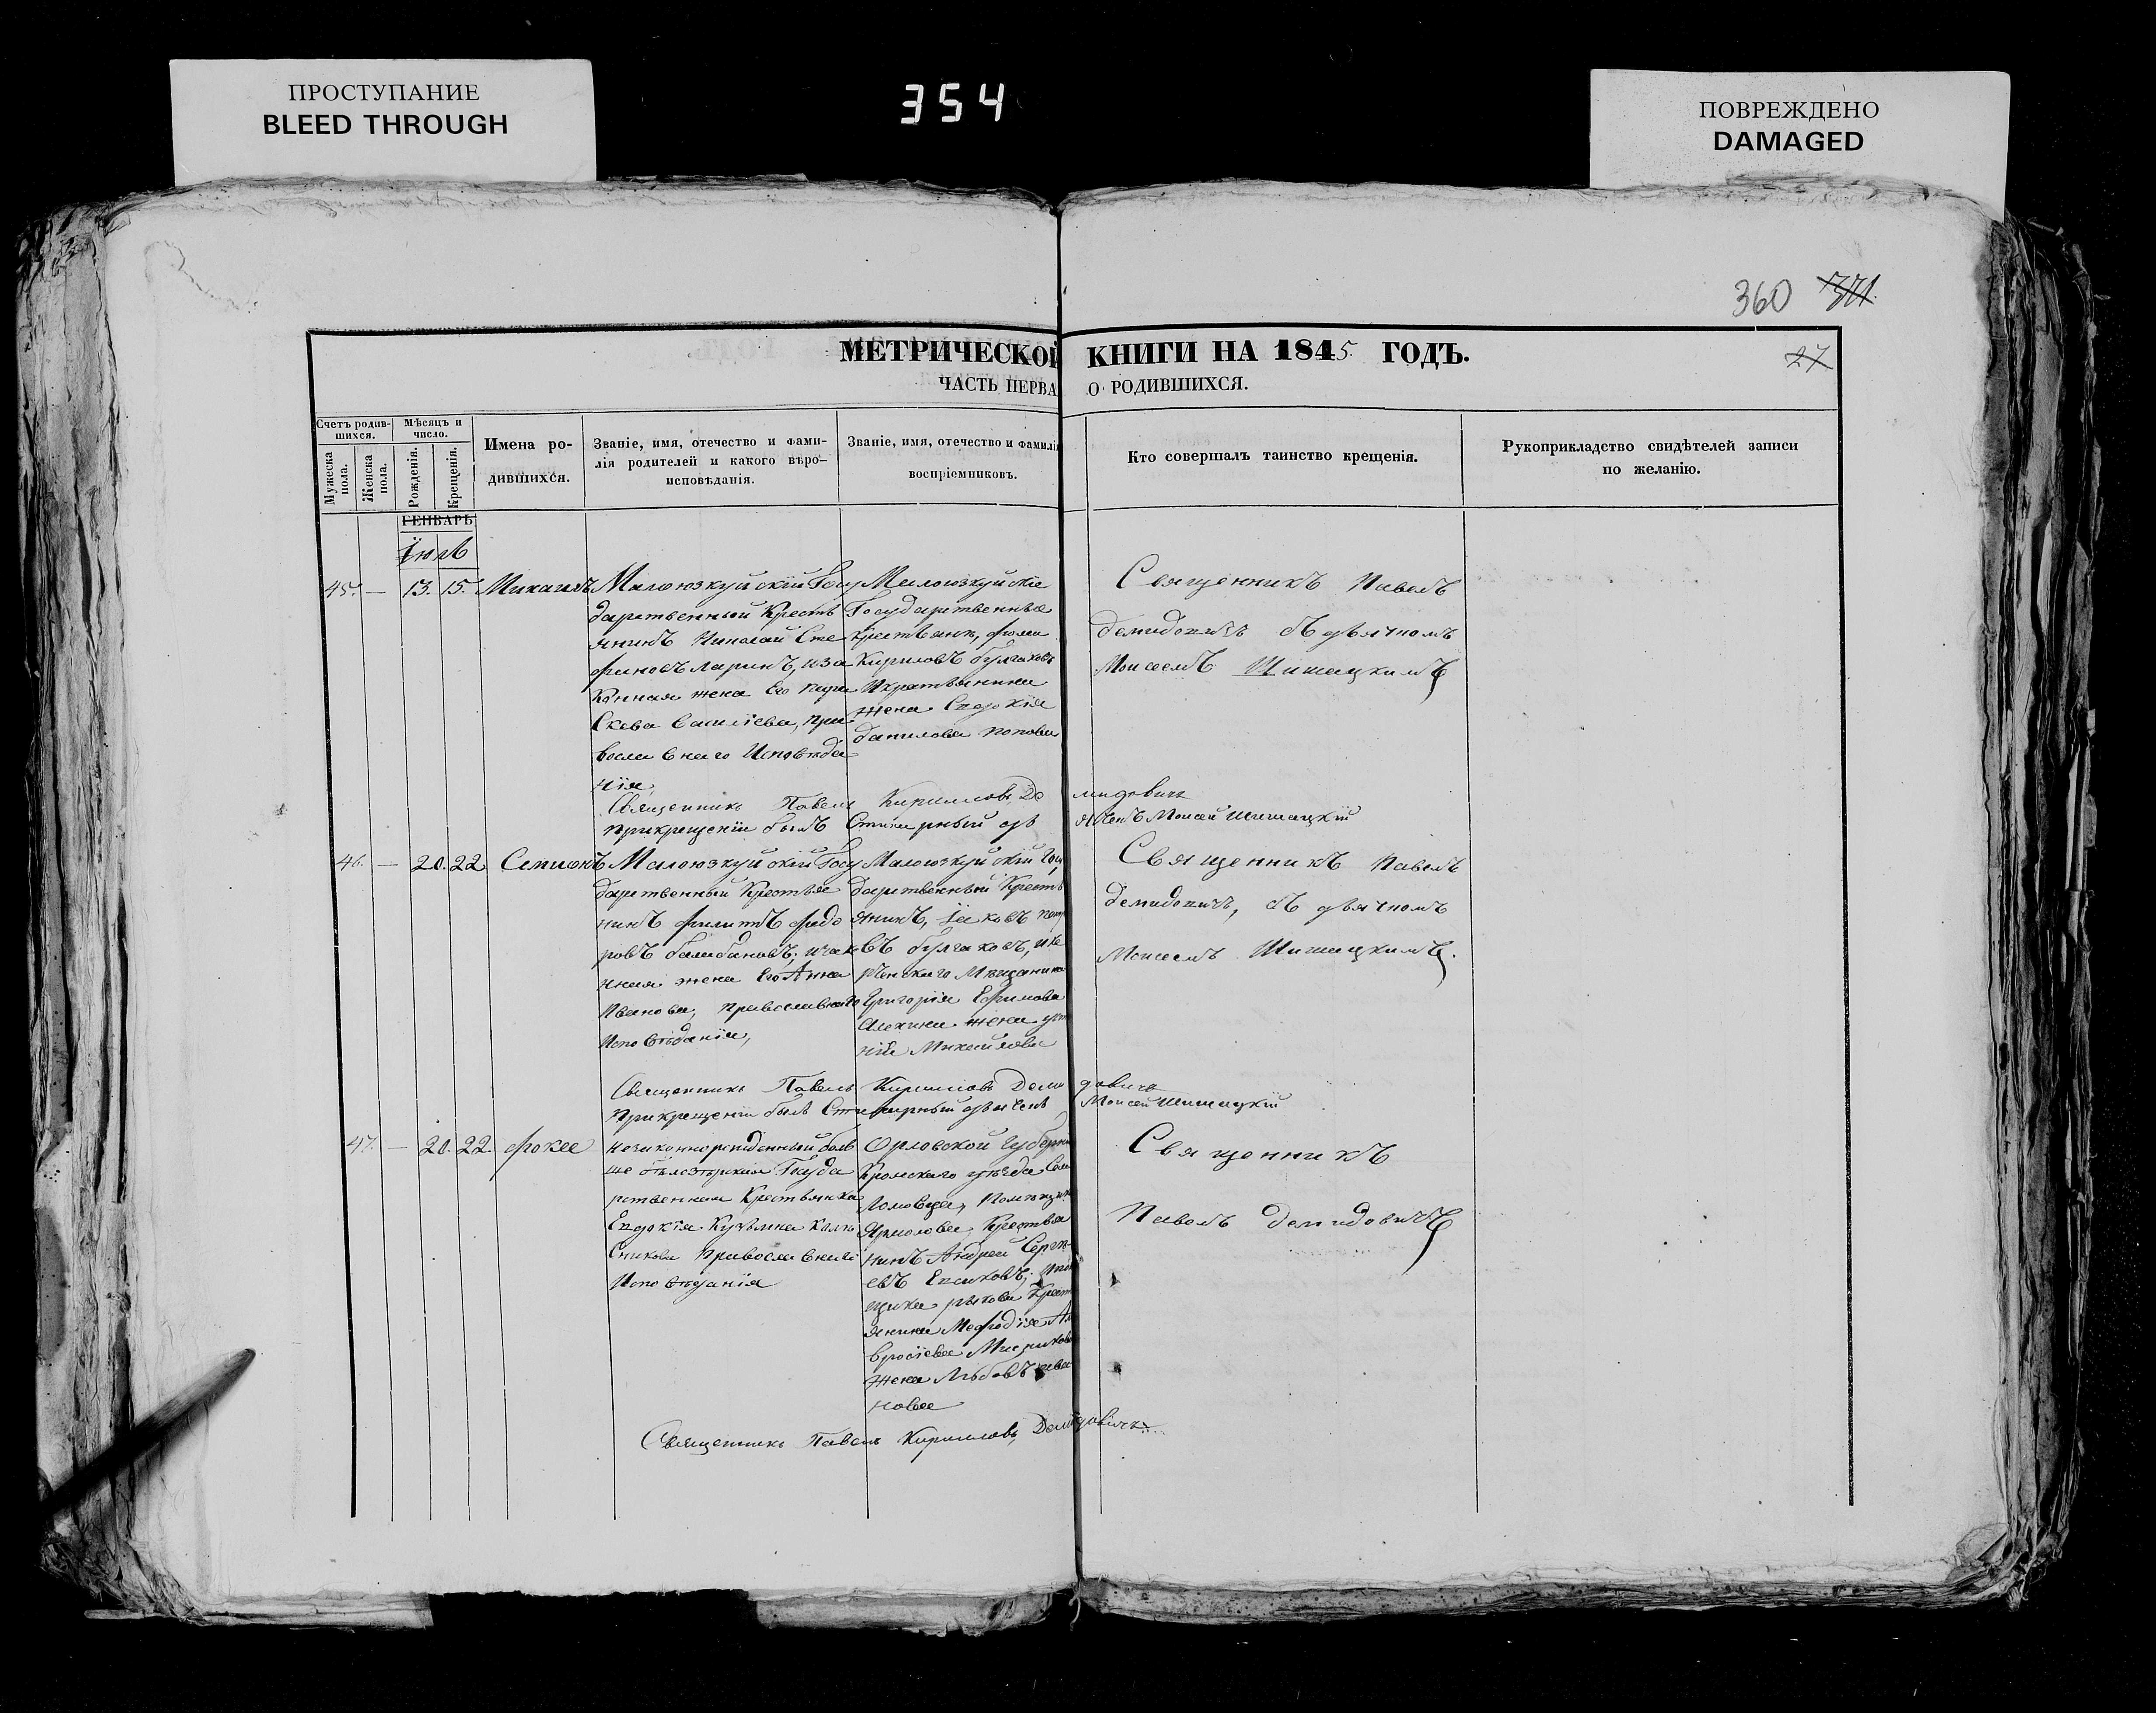 ПРОСТУПАНИЕ
BLEED THROUGH
354
ПОВРЕЖДЕНО
DAMAGED
360 371.
МЕТРИЧЕСКОЙ КНИГИ НА 1845. ГОДЪ.
27
ЧАСТЬ ПЕРВА О РОДИВШИХСЯ.
Счетъ родив-
шихся.
Мужеска
пола.
Женска
пола.
Мѣсяцъ и
число.
Рожденія.
Крещенія.
Имена ро-
дившихся.
Званіе, имя, отечество и фами-
лія родителей и какого вѣро-
исповѣданія.
Званіе, имя, отечество и фамилі
воспріемниковъ.
Кто совершалъ таинство крещенія.
Рукоприкладство свидѣтелей записи
по желанію.
ГЕНВАРЬ
Іюль
45. — 13. 15. Михаилъ
Малоюзкуйскій Госу
дарственный Кресть
янинъ Николай Сте
фановъ Ларинъ, иза
конная жена Его пара
Скева Василіева, пра
вославнаго Исповѣда
нія,
Малоюзкуйскіе
Государственные
Крестьяне, фома
Кириловъ булгаковъ
Икрестьянина
жена Евдокія
данилова попова
Священникъ Павелъ
Демидовичъ съ дьячномъ
Моисеемъ Шишацкимъ
Священникъ Павелъ Кирилловъ Демидовичъ
Прикрещеніи былъ Стихарный дьяченъ Моисей Шишацкій
46. — 20. 22 Семионъ
Малоюзкуйскій Госу
дарственный Крестья
нинъ филиппъ федо
ровъ балабановъ; изак
нная жена Его Анна
Иванова, православнаго
Исповѣданія,
Малоюзкуйскій Госу
дарственный Кресть
янинъ, Іаковъ пет
въ булгаковъ,
Мѣщанина
Григорія Ефимова
Алехина жена
Михайлова
Священникъ Павелъ
Демидовичъ, съ дьячномъ
Моисеемъ Шишацкимъ.
Священникъ Павелъ Кирилловъ Демидовичъ
Прикрещеніи былъ Стихарный дьяченъ Моисей Шишацкій
47. — 20. 22. фокее
незаконнорожденный
Госуда
рственная Крестьянка
Евдокія Кузьмина
православнаго
Исповѣданія
Орловской Губерни
Кромскаго уѣзда Сел
Ломовца, Помѣщик
Ярмолова Крестья
нинъ Андрей Серге-
евъ
щика рыкова Крест
янина Мефодія Ам
вросіева
жена Любовь ива
нова
Священникъ
Павелъ Демидовичъ
Священникъ Павелъ Кирилловъ Демидовичъ